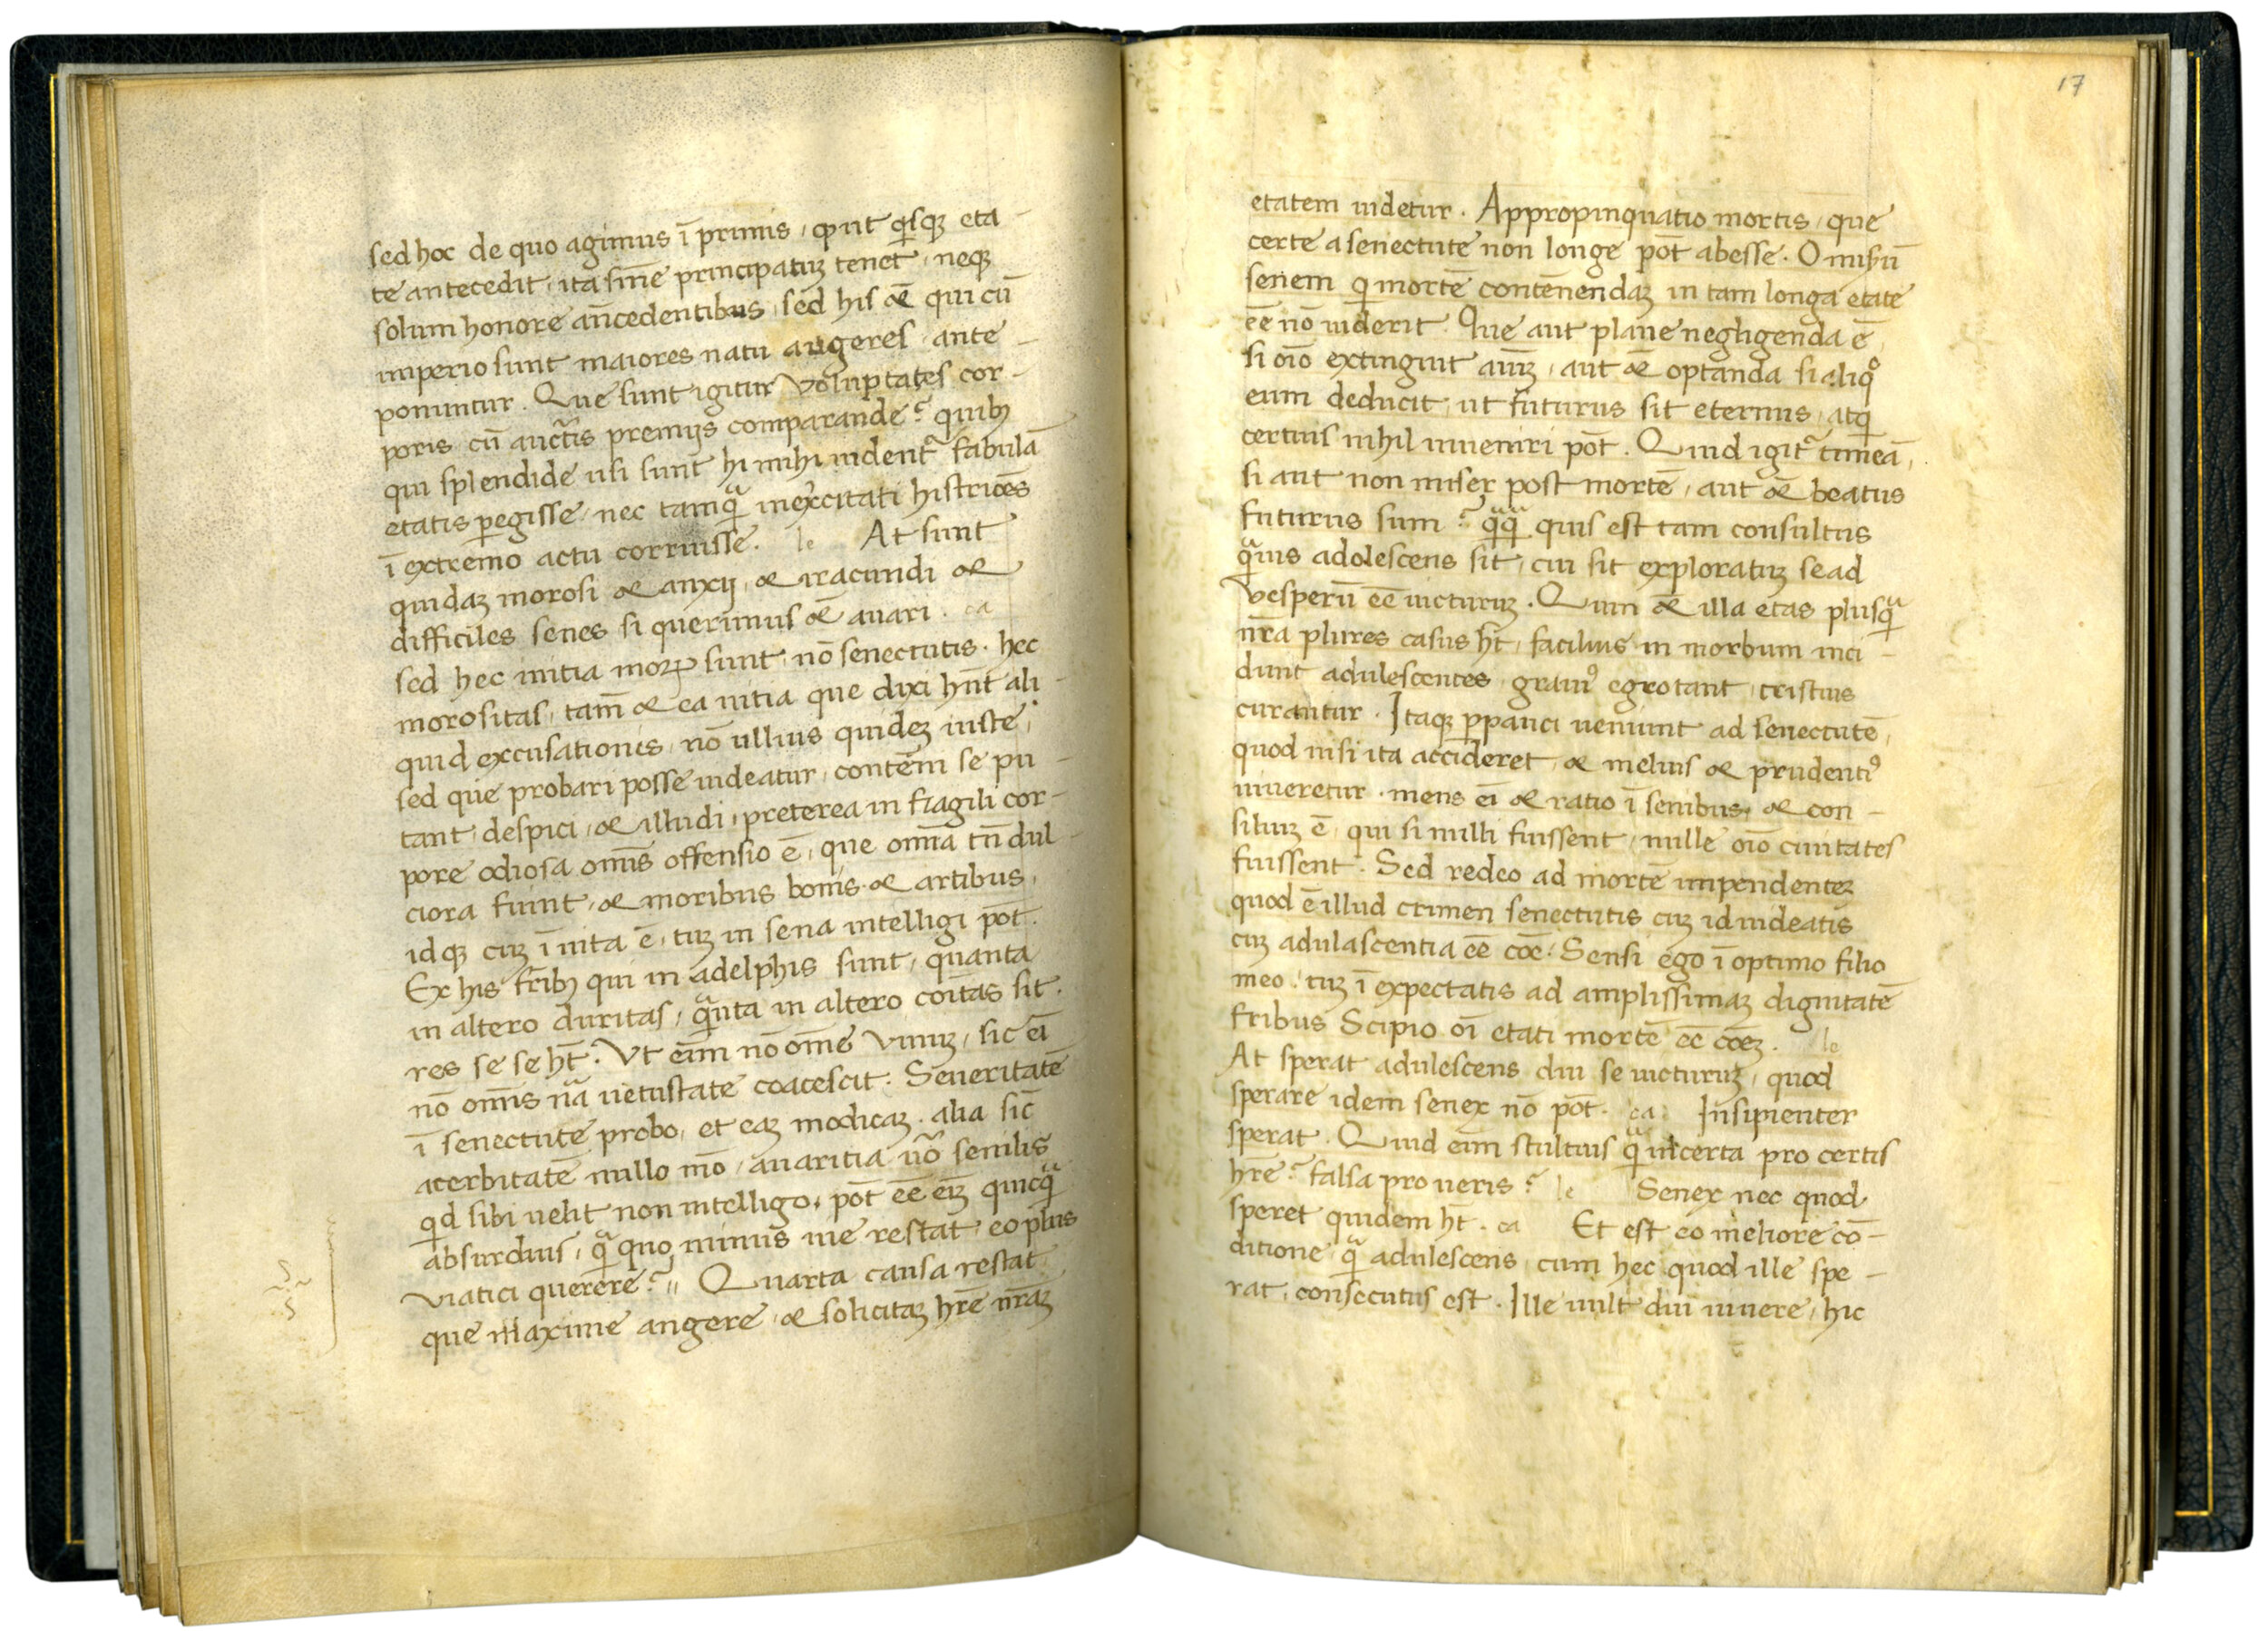 sed hoc de quo agimus ī primis, ꝓut qisqꝫ eta-
te antecedit, ita sñie principatuꝫ tenet, neqꝫ
solum honore añcedentibus, sed his &̄ qui cū
imperio sunt maiores natu augeres, ante-
ponuntur. Que sunt igitur voluptates cor-
poris cū auctis premijs comparande? quibꝫ
qui splendide usi sunt hi mihi uident fabulā
etatis ꝑegisse, nec tamq inexcitati histriões
ī extremo actu corruisse. le At sunt
quidaꝫ morosi & anxij, & iracundi &
difficiles senes si querimus &̄ auari. ca
sed hec initia moꝝ sunt, nō senectutis. hec
morositas, tam̄ & ea initia que dixi hn̄t ali-
quid excusationis, nō ullius quideꝫ iuste,
sed que probari posse uideatur, contēni se pu-
tant, despici, & illudi, preterea in fragili cor-
pore odiosa om̄is offensio ē, que om̄ia tn̄ dul-
ciora fiunt, & moribus bonis & artibus,
idqꝫ cuꝫ ī uita ē, tuꝫ in sena intelligi pōt.
Ex his fribꝫ qui in adelphis sunt, quanta
in altero duritas, qnta in altero coītas sit.
res se se ht̄. Vt eīm nō om̄e vinuꝫ, sic eī
nō om̄is nā uetustate coacescit. Seueritatē
ī senectute probo, et eaꝫ modicaꝫ. alia sic̄
acerbitatē nullo mō, auaritia uō senilis
qd sibi uelit non intelligo, pōt ēē eiꝫ quicq
absurdius, q quo minus uie restat, eo plus
viatici querere? Quarta causa restat
que maxime angere, & solicitaꝫ hr̄e nr̄aꝫ
17
etatem uidetur. Appropinquatio mortis, que
certe a senectute non longe pōt abesse. O misꝝū
senem qi mortē contēnendaꝫ in tam longa etate
ēē nō uiderit. Que aut plane negligenda ē,
si oīo extinguit aīuꝫ, aut &̄ optanda si aliqͦ
eum deducit, ut futurus sit eternus, atqi
certius nihil inueniri pōt. Quid igit timeā,
si aut non miser post mortē, aut &̄ beatus
futurus sum? qq quis est tam consultus
quis adolescens sit, cui sit exploratuꝫ se ad
vesperū ēē uicturuꝫ. Quin &̄ illa etas plusq
nr̄a plures casus ht̄, facilius in morbum inci-
dunt adulescentes, grauiꝰ egrotant, tristius
curantur. Itaqꝫ ꝑpauci ueniunt ad senectutē,
quod nisi ita accideret, & melius & prudentiꝰ
uiueretur. mens eī & ratio ī senibus, & con-
siliuꝫ ē, qui si nulli fuissent, nulle oīo ciuitates
fuissent. Sed redeo ad mortē impendenteꝫ
quod ē illud crimen senectutis cuꝫ id uideatis
cuꝫ adulascentia ēē cōē. Sensi ego ī optimo filio
meo, tuꝫ ī expectatis ad amplissimaꝫ dignitatē
fribus Scipio oī etati mortē ēē cōeꝫ. le
At sperat adulescens diu se uicturuꝫ, quod
sperare idem senex nō pōt. ca Insipienter
sperat. Quid eīm stultius q incerta pro certis
hr̄e? falsa pro ueris? le Senex nec quod
speret quidem ht̄. ca Et est eo meliore cō-
ditione q adulescens, cum hec quod ille spe-
rat, consecutus est. Ille uult diu uiuere, hic